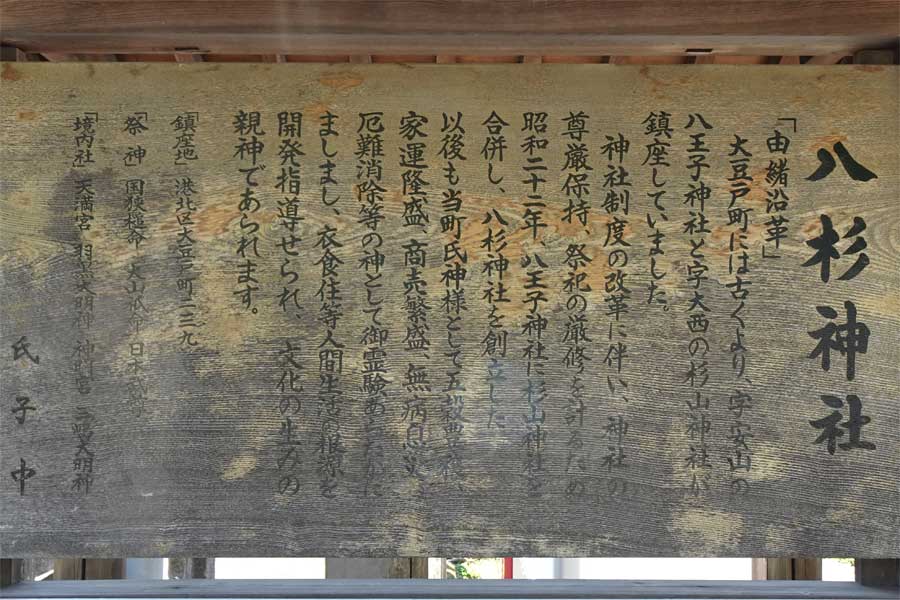 八杉神社
「由緒沿革」
大豆戸町には古くより、字安山の
八王子神社と字大西の杉山神社が
鎮座していました。
神社制度の改革に伴い、神社の
尊厳保持、祭祀の厳修を計るため
昭和二十二年、八王子神社に杉山神社を
合併し、八杉神社を創立した
以後も当町氏神様として五穀豊穣、
家運隆盛、商売繁盛、無病息災
厄難消除等の神として御霊験あらたかに
ましまし、衣食住等人間生活の根源を
開発指導せられ、文化の生みの
親神であられます。
「鎮座地」港北区大豆戸町
「祭神」国狭槌命 大山祇命 日本武尊
「境内社」天満宮 大明神 神明宮 大明神
氏子中